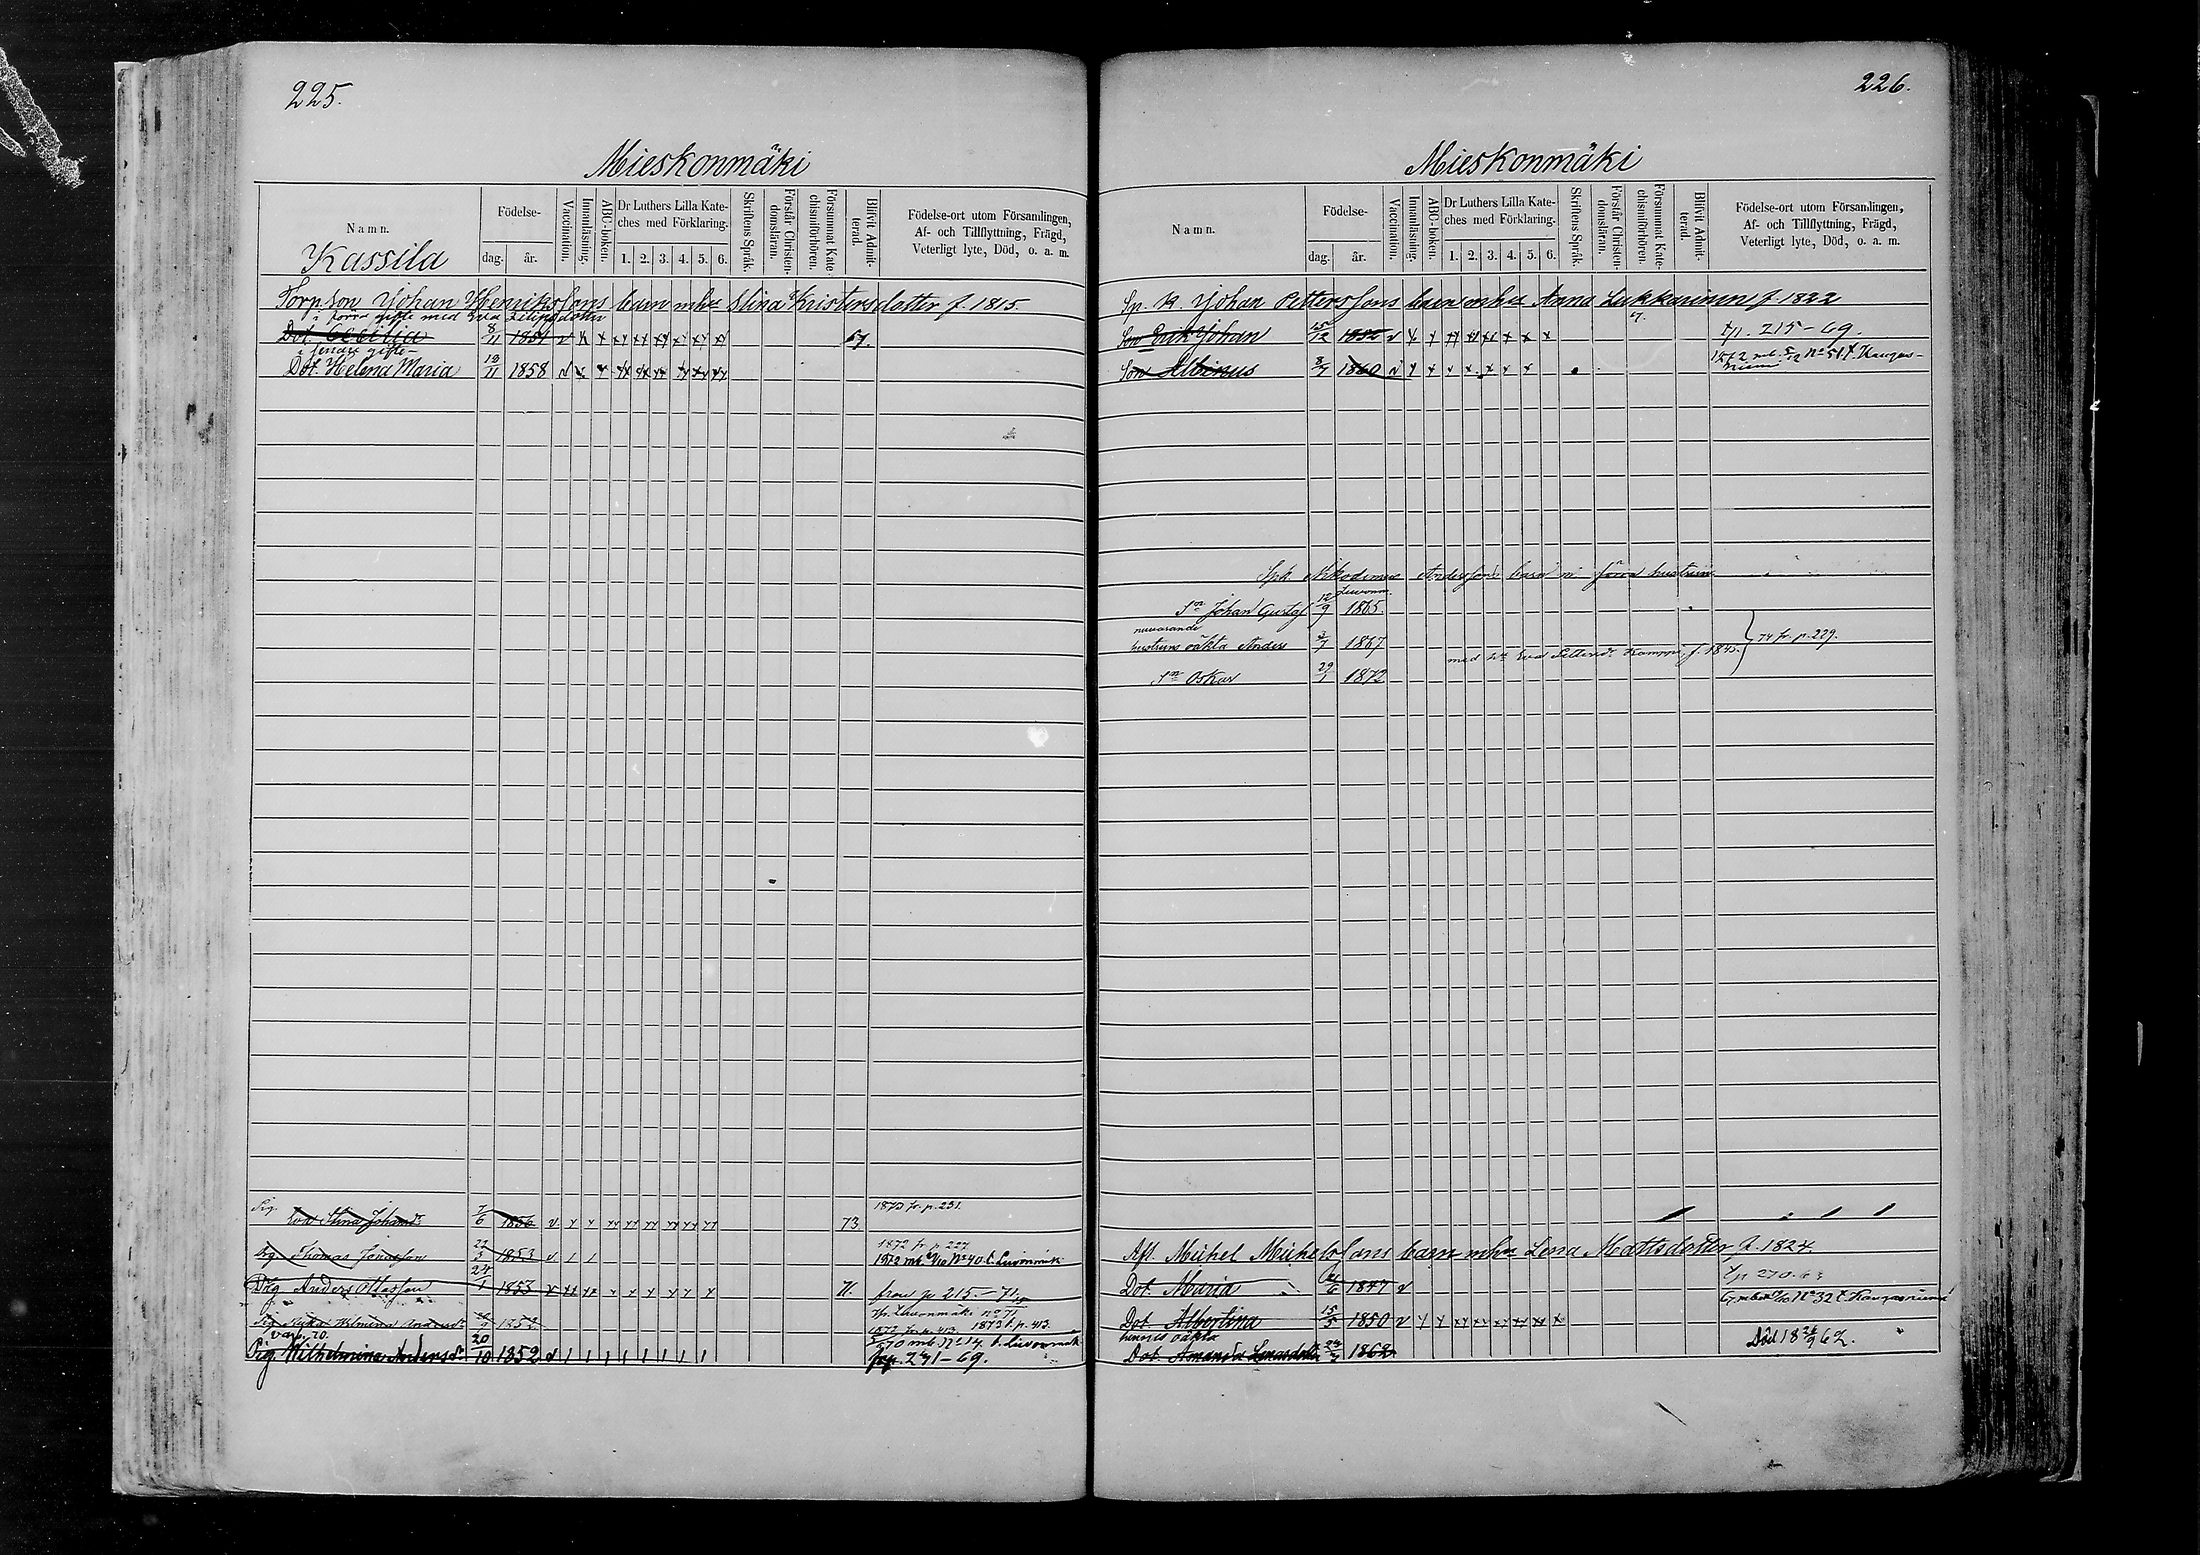 225.
Mieskonmäki
Namn.
Kassila
Födelse-
dag. år.
Vaccination.
Innanläsning.
ABC-boken.
Dr Luthers Lilla Kate-
ches med Förklaring.
1. 2. 3. 4. 5. 6.
Skriftens Språk.
Förstår Christen-
domsläran.
Försummat Kate-
chismiförhören.
Blifvit Admit-
terad.
Födelse-ort utom Församlingen,
Af- och Tillflyttning, Frägd,
Veterligt lyte, Död, o. a. m.
Torp son Johan Henrikssons barn m hu Stina Kristersdotter f. 1815.
i förra gifte med Eva
Dot. Cecilia 8/11 1851 v x x xx xx xx xx xx xx 67.
i senare gifte-
Dot. Helena Maria 12/11 1858 v x x xx xx xx xx xx xx
Pig. Eva Stina Johansdr 7/6 1856 v x x xx xx xx xx xx xx 73 1872 fr. p. 231.
Thomas Jonasson 22/3 1853 v 1 1 1872 fr. p. 227
Drg Anders Ottosson 24/1 1853 v xx xx x x x x x x 71. frau p 215.-71
Pig Wilhelmina Andersdr 1852 1872 fr. p. 413. 1873 t. p. 413.
Pig. Wilhelmina Andersdr 20/10 1852 v 1 1 1 1 1 1 1 1 frp. 231-69.
226.
Mieskonmäki
Namn.
Födelse-
dag. år.
Vaccination.
Innanläsning.
ABC-boken.
Dr Luthers Lilla Kate-
ches med Förklaring.
1. 2. 3. 4. 5. 6.
Skriftens Språk.
Förstår Christen-
domsläran.
Försummat Kate-
chismiförhören.
Blifvit Admit-
terad.
Födelse-ort utom Församlingen,
Af- och Tillflyttning, Frägd,
Veterligt lyte, Död, o. a. m.
Sp. K. Johan Petterssons barn m hu Anna Lukkarinen f. 1822
Son Erik Johan 25/12 1852 v x x xx xx xx x x x tp. 215-69.
Son Albinus 8/7 1860 v x x x x x x x 1872 mb. 5/12 No 51 t. Kangas-
niemi
Spk Nikodemus Anderssons barn m förra hustrun
Sn Johan Gustaf 12/9 1865
nuvarande
hustruns oäkta Anders 3/7 1867 74 fr. p. 229.
med hu Eva Pettersdr Kamppi f. 1845.
Sn Oskar 29/1 1872
Afl. Michel Michelssons barn m hu Lena Mattsdotter f. 1824.
Dot. Maria 1847 v tp 270.
Dot. Albertina 15/5 1850 v x x xx xx xx xx xx x No 32 t. Kangasniemi
hennes oäkta
Dot. Amanda Lenasdotter 1862 Död 18 62.